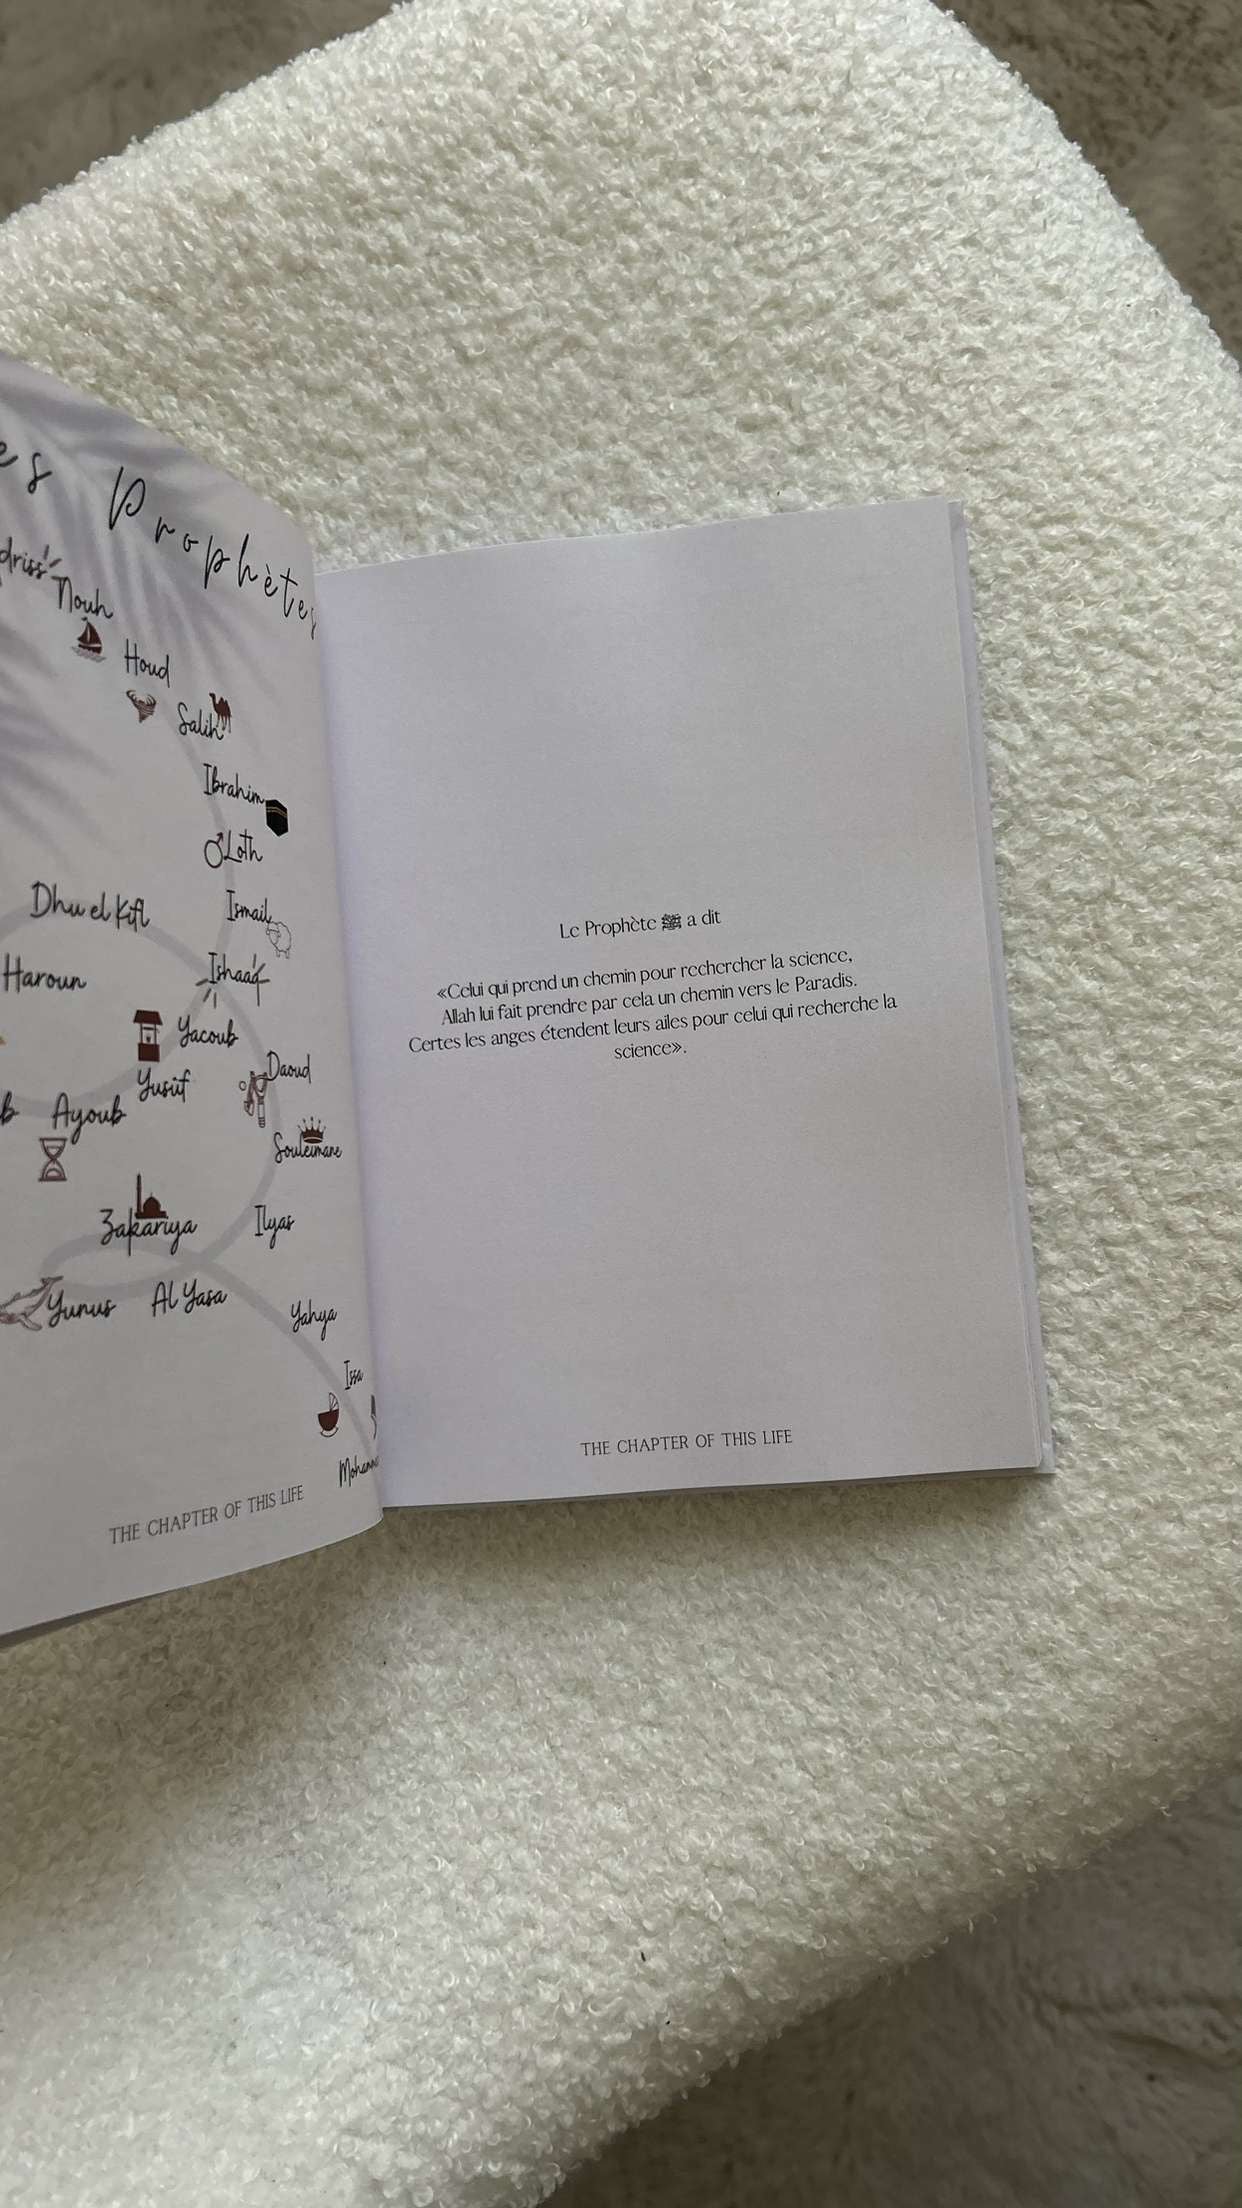 Prophètes
Nouh
Houd
Salih
Ibrahim
Loth
Dhu el Kifl
Ismail
Haroun
Ishaaq
Yacoub
Yusuf
Daoud
Ayoub
Souleimane
Zakariya
Ilyas
Yunus
Al Yasa
Yahya
Issa
THE CHAPTER OF THIS LIFE
Le Prophète ﷺ a dit
«Celui qui prend un chemin pour rechercher la science,
Allah lui fait prendre par cela un chemin vers le Paradis.
Certes les anges étendent leurs ailes pour celui qui recherche la
science».
THE CHAPTER OF THIS LIFE